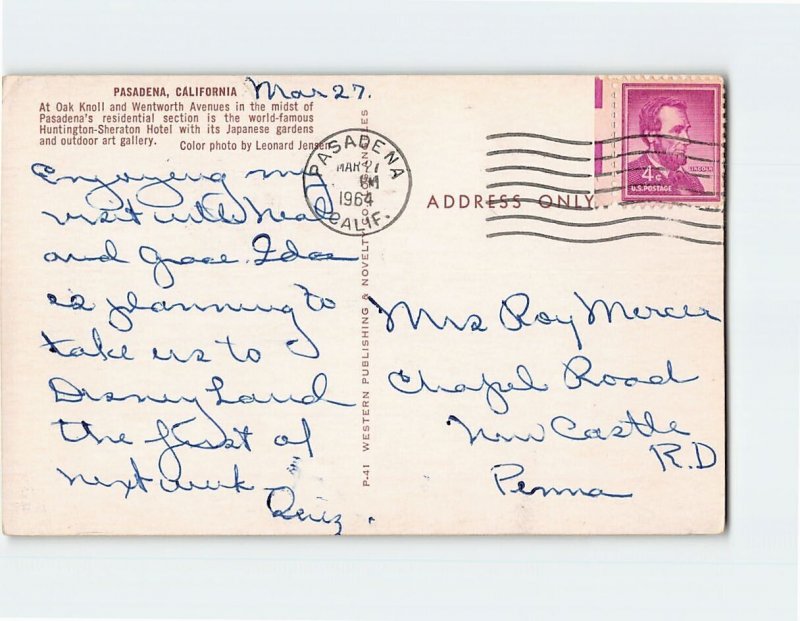 PASADENA, CALIFORNIA
Mar 27.
At Oak Knoll and Wentworth Avenues in the midst of
Pasadena's residential section is the world-famous
Huntington-Sheraton Hotel with its Japanese gardens
and outdoor art gallery. Color photo by Leonard Jensen
Enjoying my
visit with Neal
and Grace. Idae
is planning to
take us to
Disney Land
the first of
next week -
P-41 WESTERN PUBLISHING & NOVELTY
PASADENA
CALIF.
MAR 27
PM
1964
ADDRESS ONLY
LINCOLN
4¢
U.S. POSTAGE
Mrs Roy Mercer
Chapel Road
New Castle
R.D
Penna